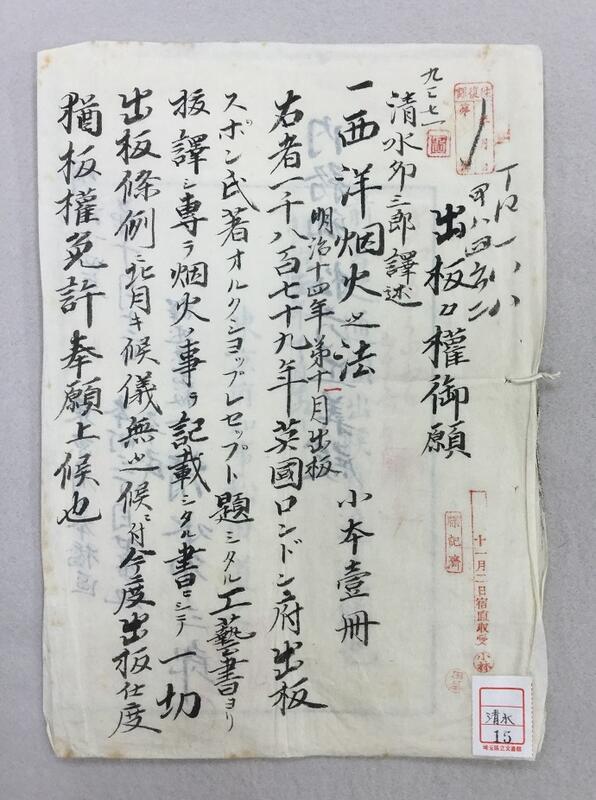 出板々權御願
九三七一
清水卯三郎譯述
一西洋烟火之法 小本壹冊
明治十四年第十一月出板
右者一千八百七十九年英國ロンドン府出板
スポン氏著オルクショップレセップト題シタル工藝書ヨリ
抜譯シ專ラ烟火ノ事ヲ記載シタル書ニシテ一切
出板條例ニ背キ候儀無之候ニ付今度出板仕度
猶板權免許奉願上候也
十一月二日宿直収受
小林
清水
15
埼玉県立文書館